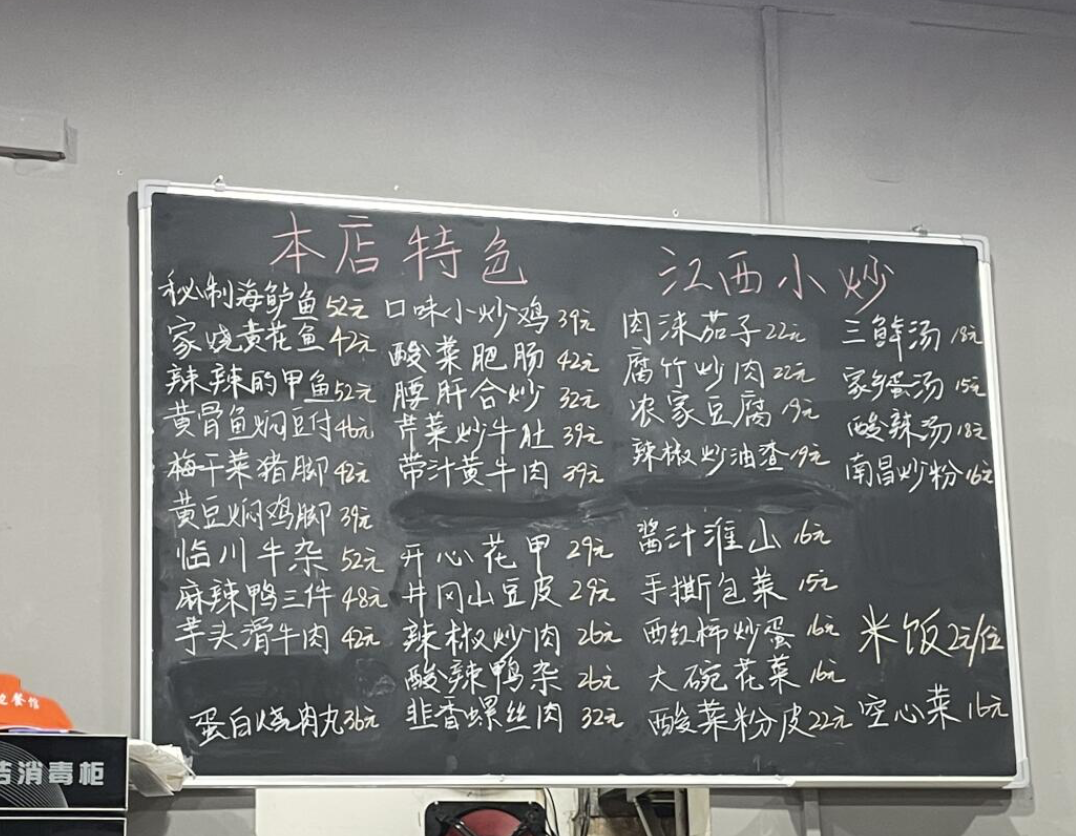 本店特色
秘制海鲈鱼52元
家烧黄花鱼42元
辣辣的甲鱼52元
黄骨鱼焖豆付46元
梅干菜猪脚42元
黄豆焖鸡脚39元
临川牛杂52元
麻辣鸭三件48元
芋头滑牛肉42元
蛋白烧肉丸36元
口味小炒鸡39元
酸菜肥肠42元
腰肝合炒32元
芹菜炒牛肚39元
带汁黄牛肉39元
开心花甲29元
井冈山豆皮29元
辣椒炒肉26元
酸辣鸭杂26元
韭香螺丝肉32元
江西小炒
肉沫茄子22元
腐竹炒肉22元
农家豆腐19元
辣椒炒油渣19元
酱汁淮山16元
手撕包菜15元
西红柿炒蛋16元
大碗花菜16元
酸菜粉皮22元
三鲜汤18元
家乡蛋汤15元
酸辣汤18元
南昌炒粉16元
米饭2元/位
空心菜16元
消毒柜